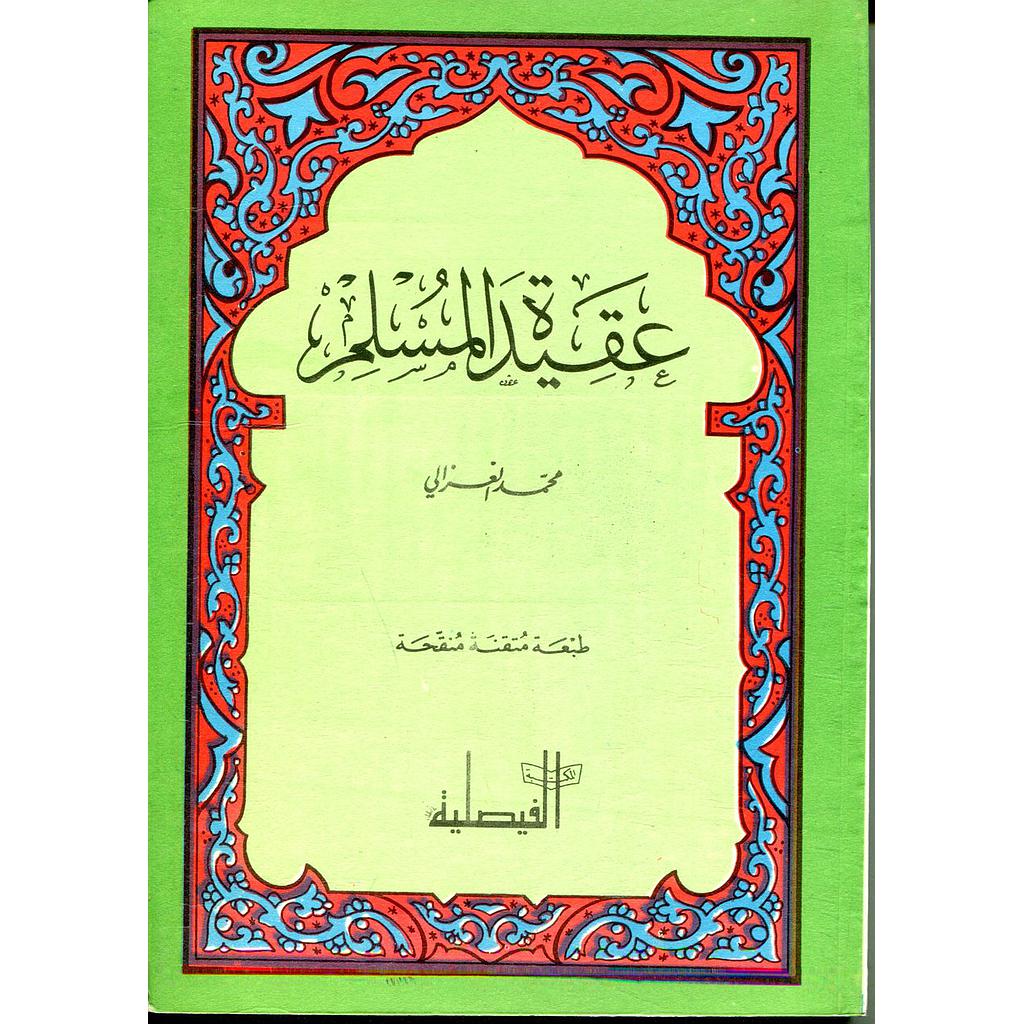 عَقِيدَة المُسْلِم
محمّد الغزالي
طبْعَة مُتقنَة مُنقّحَة
المكتبة
الفيصلية